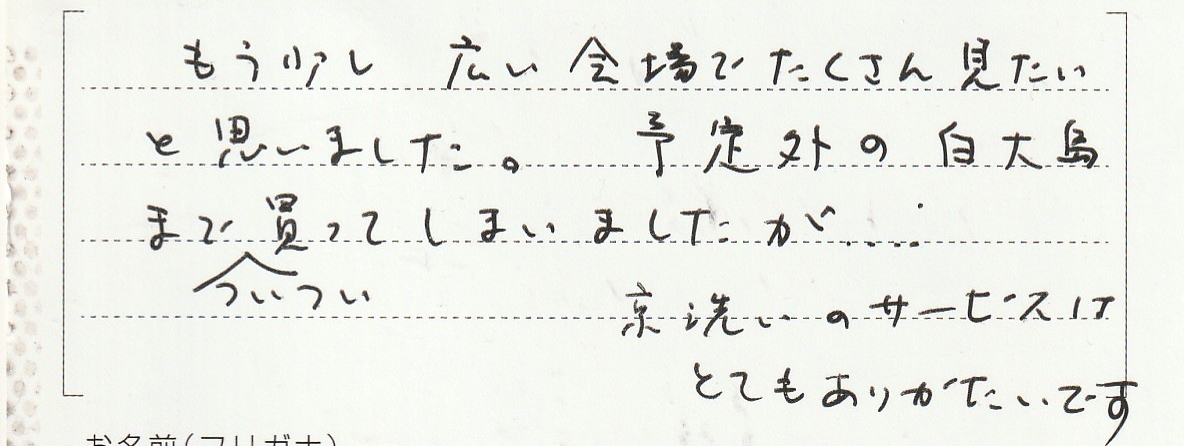 もう少し 広い会場でたくさん見たい
と思いました。 予定外の白大島
まで買ってしまいましたが.....
ついつい
京洗いのサービスは
とてもありがたいです
お名前(フリガナ)